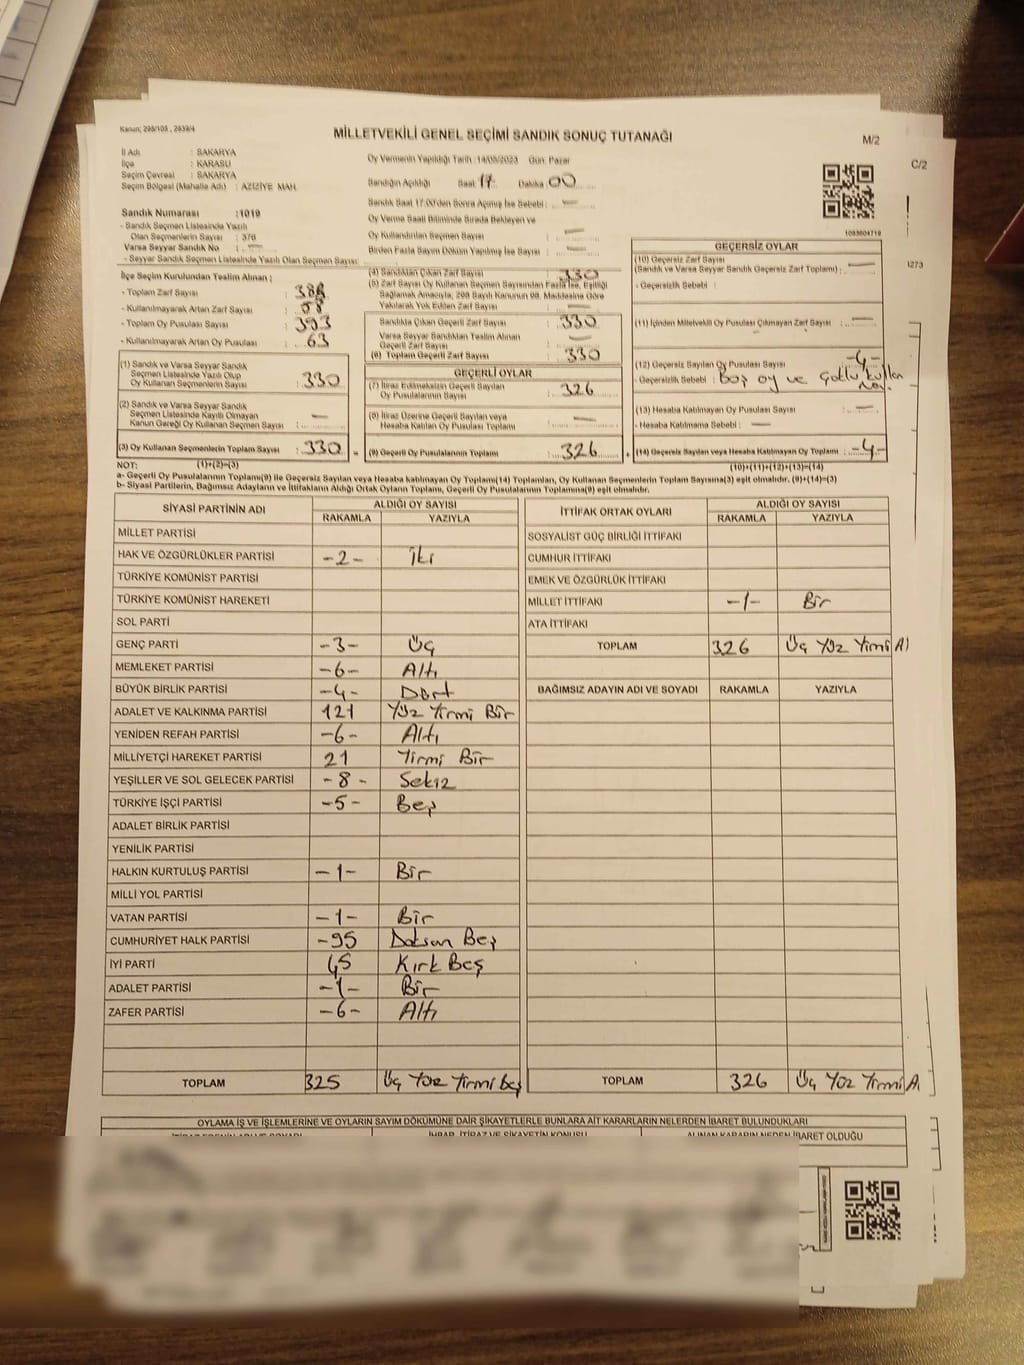 Kanun; 298/105 , 2839/4
MİLLETVEKİLİ GENEL SEÇİMİ SANDIK SONUÇ TUTANAĞI
M/2
C/2
İl Adı : SAKARYA
İlçe : KARASU
Seçim Çevresi : SAKARYA
Seçim Bölgesi (Mahalle Adı) : AZİZİYE MAH.
Oy Vermenin Yapıldığı Tarih : 14/05/2023 Gün: Pazar
Sandığın Açıldığı Saat: 17 Dakika: 00
Sandık Saat 17:00'den Sonra Açılmış İse Sebebi : —
Oy Verme Saati Bitiminde Sırada Bekleyen ve
Oy Kullandırılan Seçmen Sayısı : —
Birden Fazla Sayım Döküm Yapılmış İse Sayısı : —
Sandık Numarası :1019
- Sandık Seçmen Listesinde Yazılı
Olan Seçmenlerin Sayısı : 376
Varsa Seyyar Sandık No : —
- Seyyar Sandık Seçmen Listesinde Yazılı Olan Seçmen Sayısı:
İlçe Seçim Kurulundan Teslim Alınan ;
- Toplam Zarf Sayısı : 388
- Kullanılmayarak Artan Zarf Sayısı : 58
- Toplam Oy Pusulası Sayısı : 393
- Kullanılmayarak Artan Oy Pusulası : 63
(1) Sandık ve Varsa Seyyar Sandık
Seçmen Listesinde Yazılı Olup
Oy Kullanan Seçmenlerin Sayısı : 330
(2) Sandık ve Varsa Seyyar Sandık
Seçmen Listesinde Kayıtlı Olmayan
Kanun Gereği Oy Kullanan Seçmen Sayısı : —
(3) Oy Kullanan Seçmenlerin Toplam Sayısı : 330
(4) Sandıktan Çıkan Zarf Sayısı : 330
(5) Zarf Sayısı Oy Kullanan Seçmen Sayısından Fazla İse, Eşitliği
Sağlamak Amacıyla; 298 Sayılı Kanunun 98. Maddesine Göre
Yakılarak Yok Edilen Zarf Sayısı : —
Sandıkta Çıkan Geçerli Zarf Sayısı : 330
Varsa Seyyar Sandıktan Teslim Alınan
Geçerli Zarf Sayısı : —
(6) Toplam Geçerli Zarf Sayısı : 330
GEÇERLİ OYLAR
(7) İtiraz Edilmeksizin Geçerli Sayılan
Oy Pusulalarının Sayısı : 326
(8) İtiraz Üzerine Geçerli Sayılan veya
Hesaba Katılan Oy Pusulası Toplamı :
(9) Geçerli Oy Pusulalarının Toplamı : 326
1093604719
1273
GEÇERSİZ OYLAR
(10) Geçersiz Zarf Sayısı
(Sandık ve Varsa Seyyar Sandık Geçersiz Zarf Toplamı) : —
- Geçersizlik Sebebi :
(11) İçinden Milletvekili Oy Pusulası Çıkmayan Zarf Sayısı : —
(12) Geçersiz Sayılan Oy Pusulası Sayısı : -4-
- Geçersizlik Sebebi : Boş oy ve Çoklu
(13) Hesaba Katılmayan Oy Pusulası Sayısı : —
- Hesaba Katılmama Sebebi : —
(14) Geçersiz Sayılan veya Hesaba Katılmayan Oy Toplamı : -4-
NOT: (1)+(2)=(3) (10)+(11)+(12)+(13)=(14)
a- Geçerli Oy Pusulalarının Toplamı(9) ile Geçersiz Sayılan veya Hesaba katılmayan Oy Toplamı(14) Toplamları, Oy Kullanan Seçmenlerin Toplam Sayısına(3) eşit olmalıdır. (9)+(14)=(3)
b- Siyasi Partilerin, Bağımsız Adayların ve İttifakların Aldığı Ortak Oyların Toplamı, Geçerli Oy Pusulalarının Toplamına(9) eşit olmalıdır.
SİYASİ PARTİNİN ADI ALDIĞI OY SAYISI
RAKAMLA YAZIYLA
MİLLET PARTİSİ
HAK VE ÖZGÜRLÜKLER PARTİSİ -2- İki
TÜRKİYE KOMÜNİST PARTİSİ
TÜRKİYE KOMÜNİST HAREKETİ
SOL PARTİ
GENÇ PARTİ -3- Üç
MEMLEKET PARTİSİ -6- Altı
BÜYÜK BİRLİK PARTİSİ -4- Dört
ADALET VE KALKINMA PARTİSİ 121 Yüz Yirmi Bir
YENİDEN REFAH PARTİSİ -6- Altı
MİLLİYETÇİ HAREKET PARTİSİ 21 Yirmi Bir
YEŞİLLER VE SOL GELECEK PARTİSİ -8- Sekiz
TÜRKİYE İŞÇİ PARTİSİ -5- Beş
ADALET BİRLİK PARTİSİ
YENİLİK PARTİSİ
HALKIN KURTULUŞ PARTİSİ -1- Bir
MİLLİ YOL PARTİSİ
VATAN PARTİSİ -1- Bir
CUMHURİYET HALK PARTİSİ -95 Doksan Beş
İYİ PARTİ 45 Kırk Beş
ADALET PARTİSİ -1- Bir
ZAFER PARTİSİ -6- Altı
TOPLAM 325 Üç Yüz Yirmi beş
İTTİFAK ORTAK OYLARI ALDIĞI OY SAYISI
RAKAMLA YAZIYLA
SOSYALİST GÜÇ BİRLİĞİ İTTİFAKI
CUMHUR İTTİFAKI
EMEK VE ÖZGÜRLÜK İTTİFAKI
MİLLET İTTİFAKI -1- Bir
ATA İTTİFAKI
TOPLAM 326 Üç Yüz Yirmi Al
BAĞIMSIZ ADAYIN ADI VE SOYADI RAKAMLA YAZIYLA
TOPLAM 326 Üç Yüz Yirmi A
OYLAMA İŞ VE İŞLEMLERİNE VE OYLARIN SAYIM DÖKÜMÜNE DAİR ŞİKAYETLERLE BUNLARA AİT KARARLARIN NELERDEN İBARET BULUNDUKLARI
İHBAR, İTİRAZ VE ŞİKAYETİN KONUSU ALINAN KARARIN NEDEN İBARET OLDUĞU